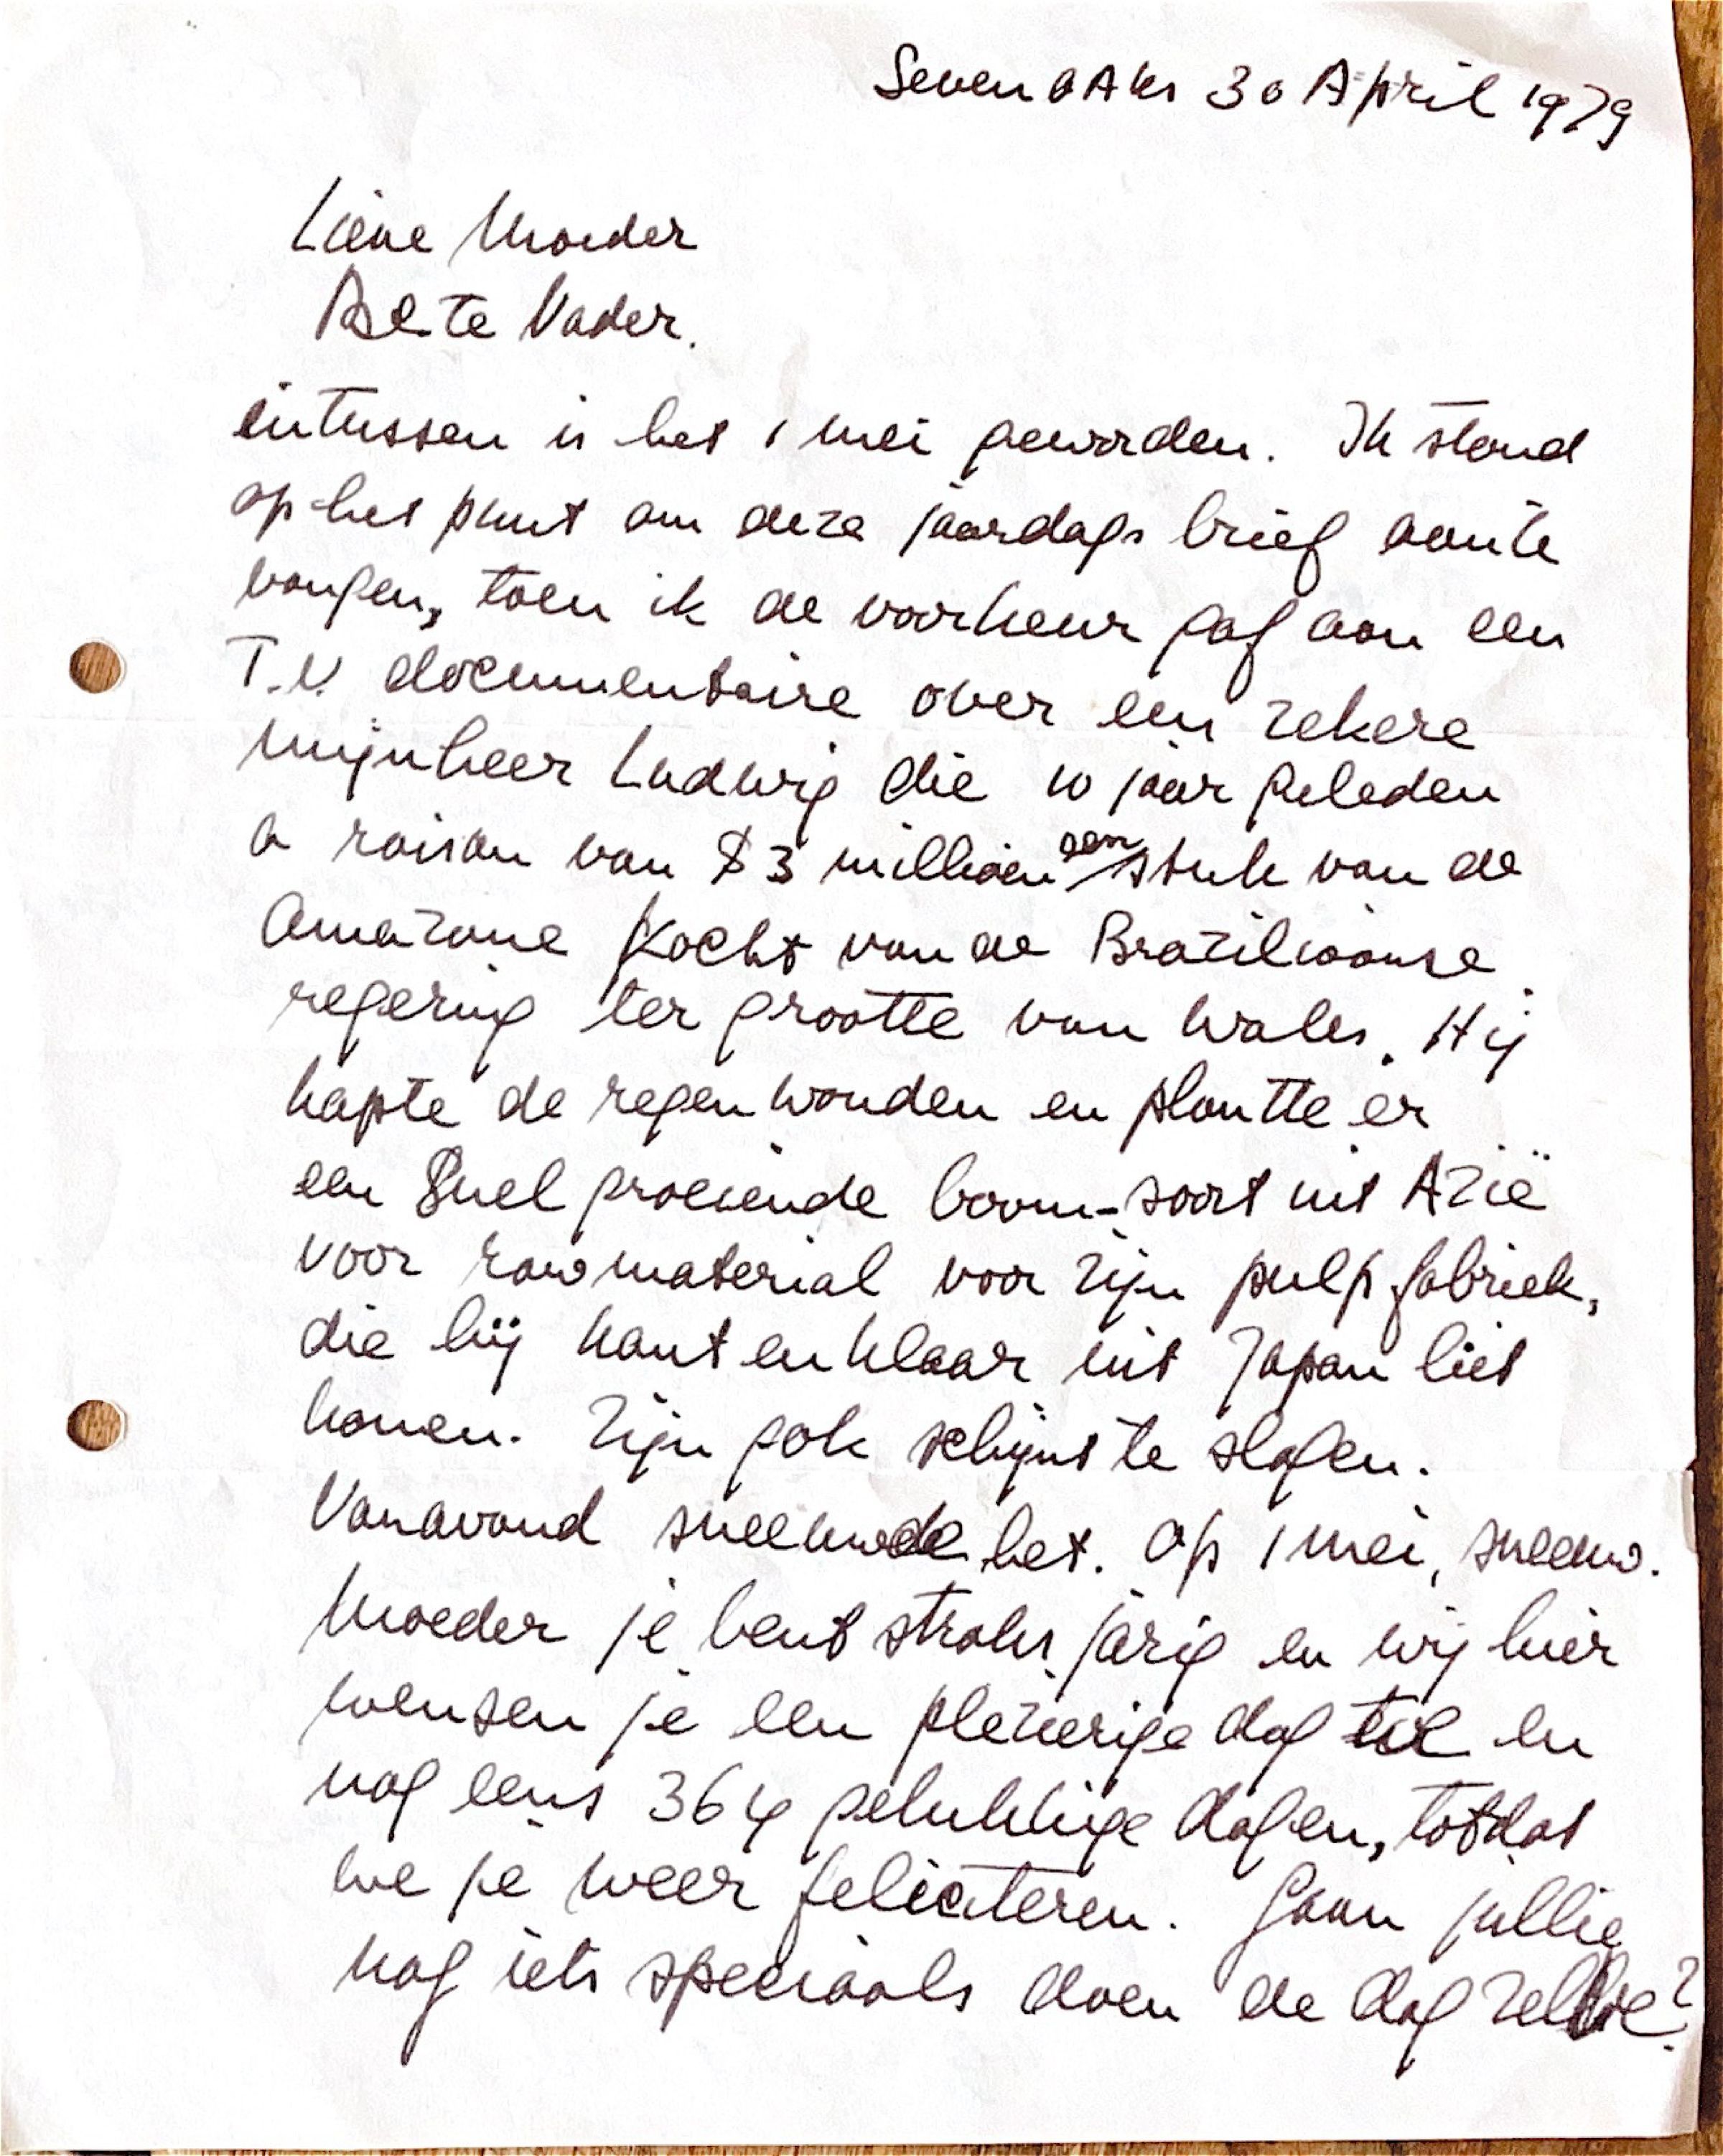 Sevenoaks 30 April 1979
Lieve Moeder
Beste Vader.
intussen is het 1 mei geworden. Ik stond
op het punt om deze jaardags brief aan te
vangen, toen ik de voorkeur gaf aan een
T.V. documentaire over een zekere
mijnheer Ludwig die 10 jaar geleden
a raison van $3 millioen een stuk van de
Amazone kocht van de Braziliaanse
regering ter grootte van Wales. Hij
kapte de regenwouden en plantte er
een snel groeiende boom-soort uit Azië
voor raw material voor zijn pulp fabriek,
die hij kant en klaar uit Japan liet
komen. Zijn gok schijnt te slagen.
Vanavond sneeuwde het. Op 1 mei, sneeuw.
Moeder je bent straks jarig en wij hier
wensen je een plezierige dag toe en
nog eens 364 gelukkige dagen, totdat
we je weer feliciteren. Gaan jullie
nog iets speciaals doen de dag zelve?